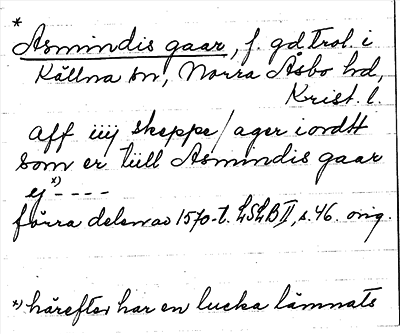 *
Asmindis gaar, f. gd trol. i
Källna sn, Norra Åsbo hd,
Krist. l.
aff iiij skeppe / ager i ordtt
som er tiill Asmindis gaar
ej *) - - - -
förra delen av 1570-t. LSLB II, s. 46. orig.
*) härefter har en lucka lämnats